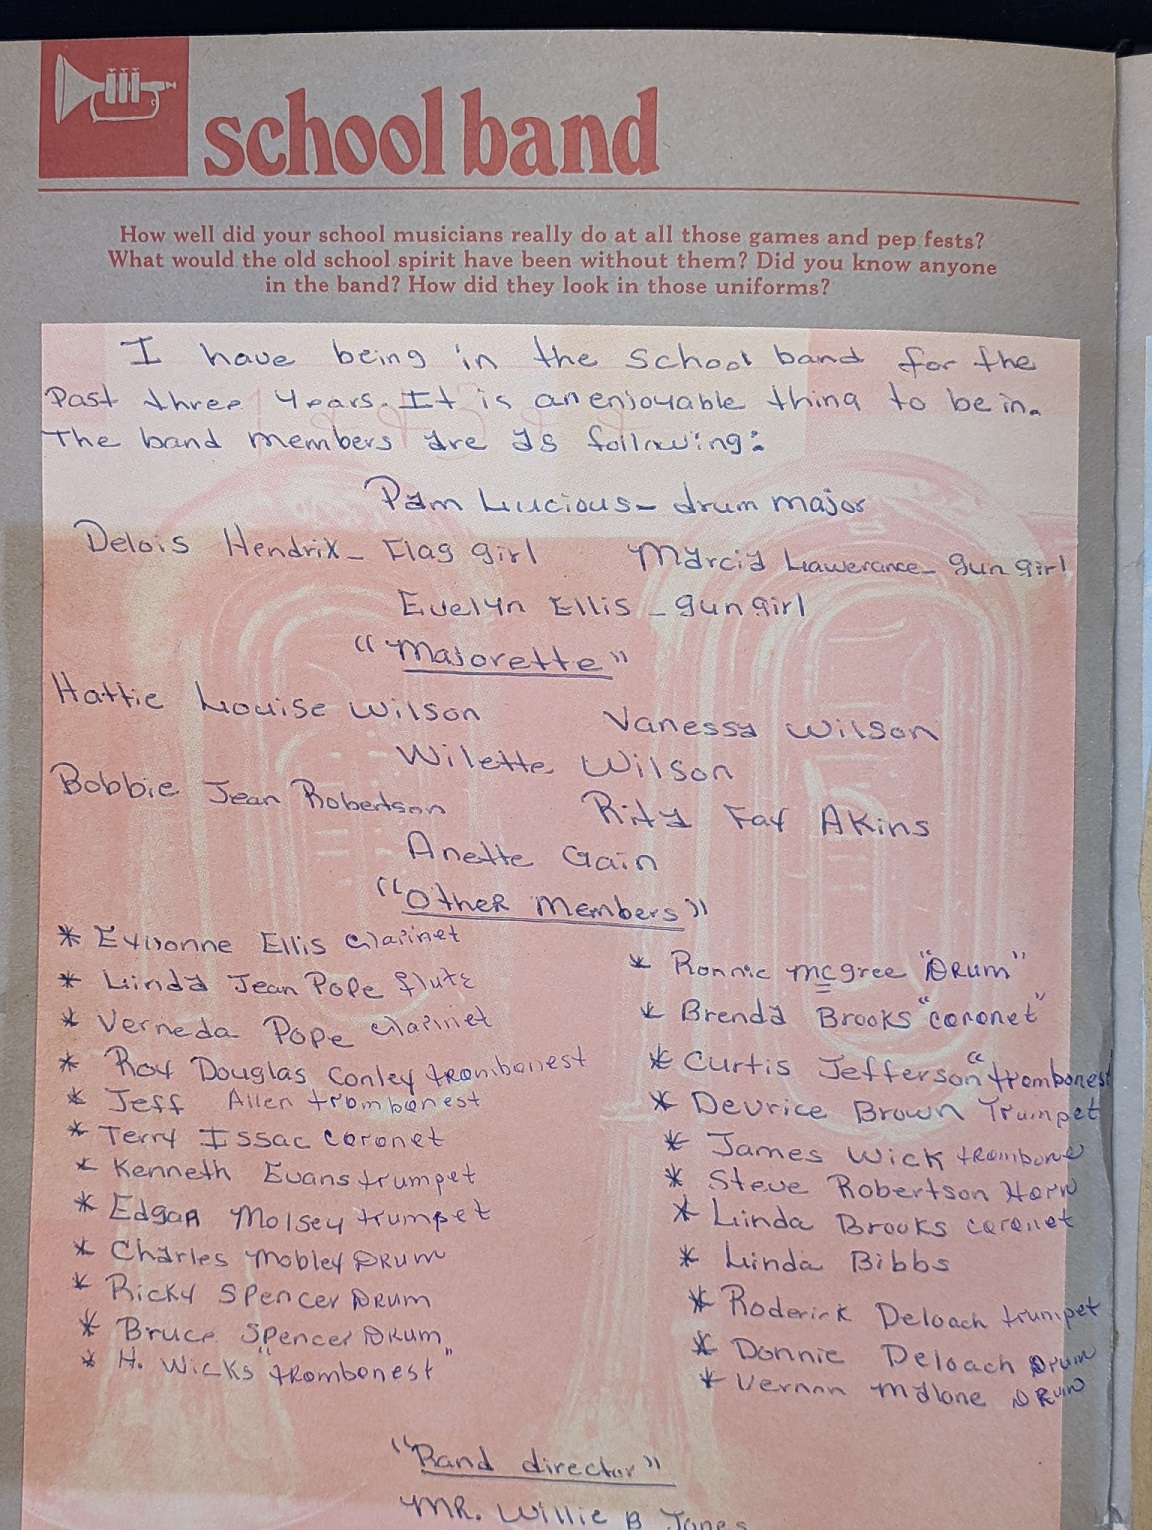 school band
How well did your school musicians really do at all those games and pep fests?
What would the old school spirit have been without them? Did you know anyone
in the band? How did they look in those uniforms?
I have being in the school band for the
Past three years. It is an enjoyable thing to be in.
The band members are as following:
Pam Lucious - drum major
Delois Hendrix - Flag girl
Marcia Lawerance - gun girl
Evelyn Ellis - gun girl
"Majorette"
Hattie Louise Wilson
Vanessa Wilson
Wilette Wilson
Bobbie Jean Robertson
Rita Fay Akins
Anette Gain
"Other Members"
* Eyvonne Ellis clarinet
* Linda Jean Pope flute
* Verneda Pope clarinet
* Roy Douglas Conley trombonest
* Jeff Allen trombonest
* Terry Issac coronet
* Kenneth Evans trumpet
* Edgar Molsey trumpet
* Charles Mobley Drum
* Ricky Spencer Drum
* Bruce Spencer Drum
* H. Wicks "trombonest"
* Ronnie mcgree "Drum"
* Brenda Brooks "coronet"
* Curtis Jefferson "trombonest
* Devrice Brown Trumpet
* James Wick trombone
* Steve Robertson Horn
* Linda Brooks coronet
* Linda Bibbs
* Roderick Deloach trumpet
* Donnie Deloach Drum
* Vernon Malone Drum
"Band director"
MR. Willie B Jones